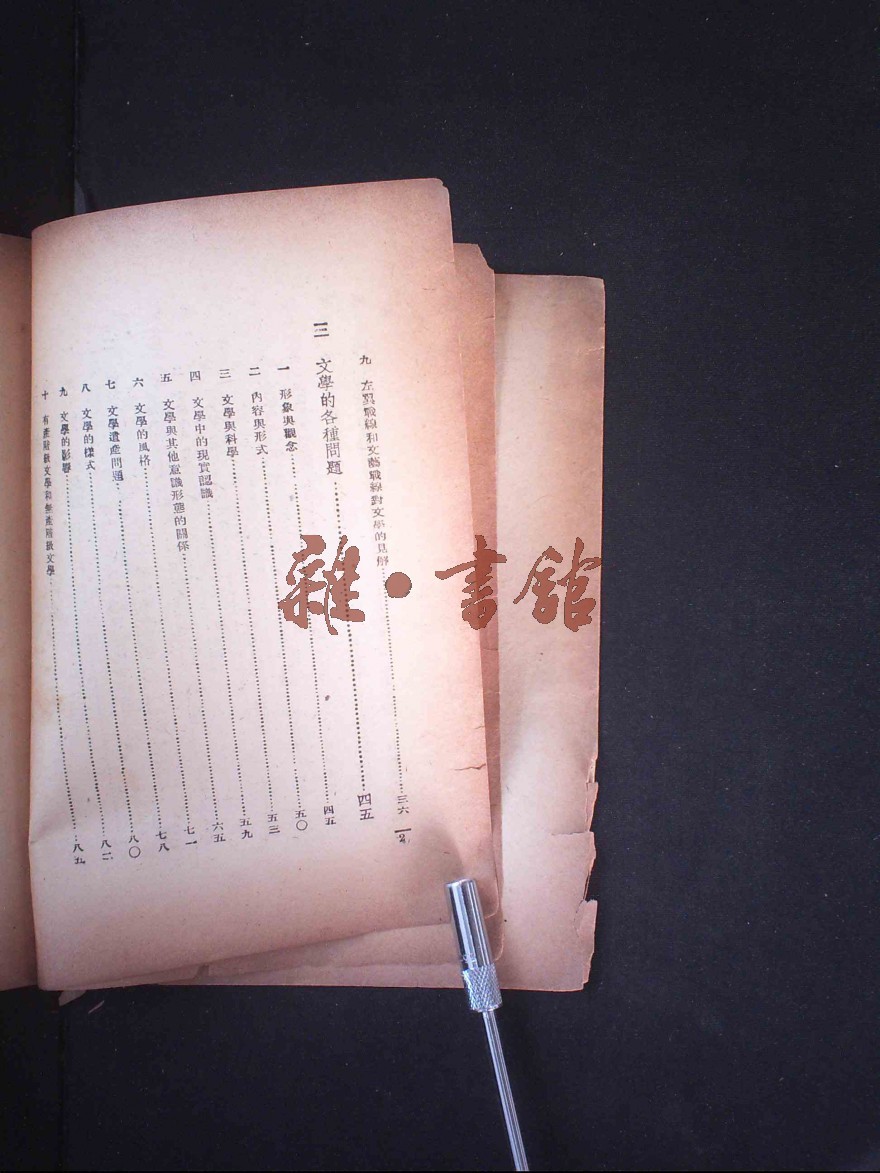 九 左翼戰線和文藝戰線對文學的見解……三六
三 文學的各種問題……四五
一 形象與觀念……四五
二 內容與形式……五〇
三 文學與科學……五三
四 文學中的現實認識……五九
五 文學與其他意識形態的關係……六五
六 文學的風格……七一
七 文學遺產問題……七八
八 文學的樣式……八〇
九 文學的影響……八二
十 有產階級文學和無產階級文學……八五
—2
雜·書館